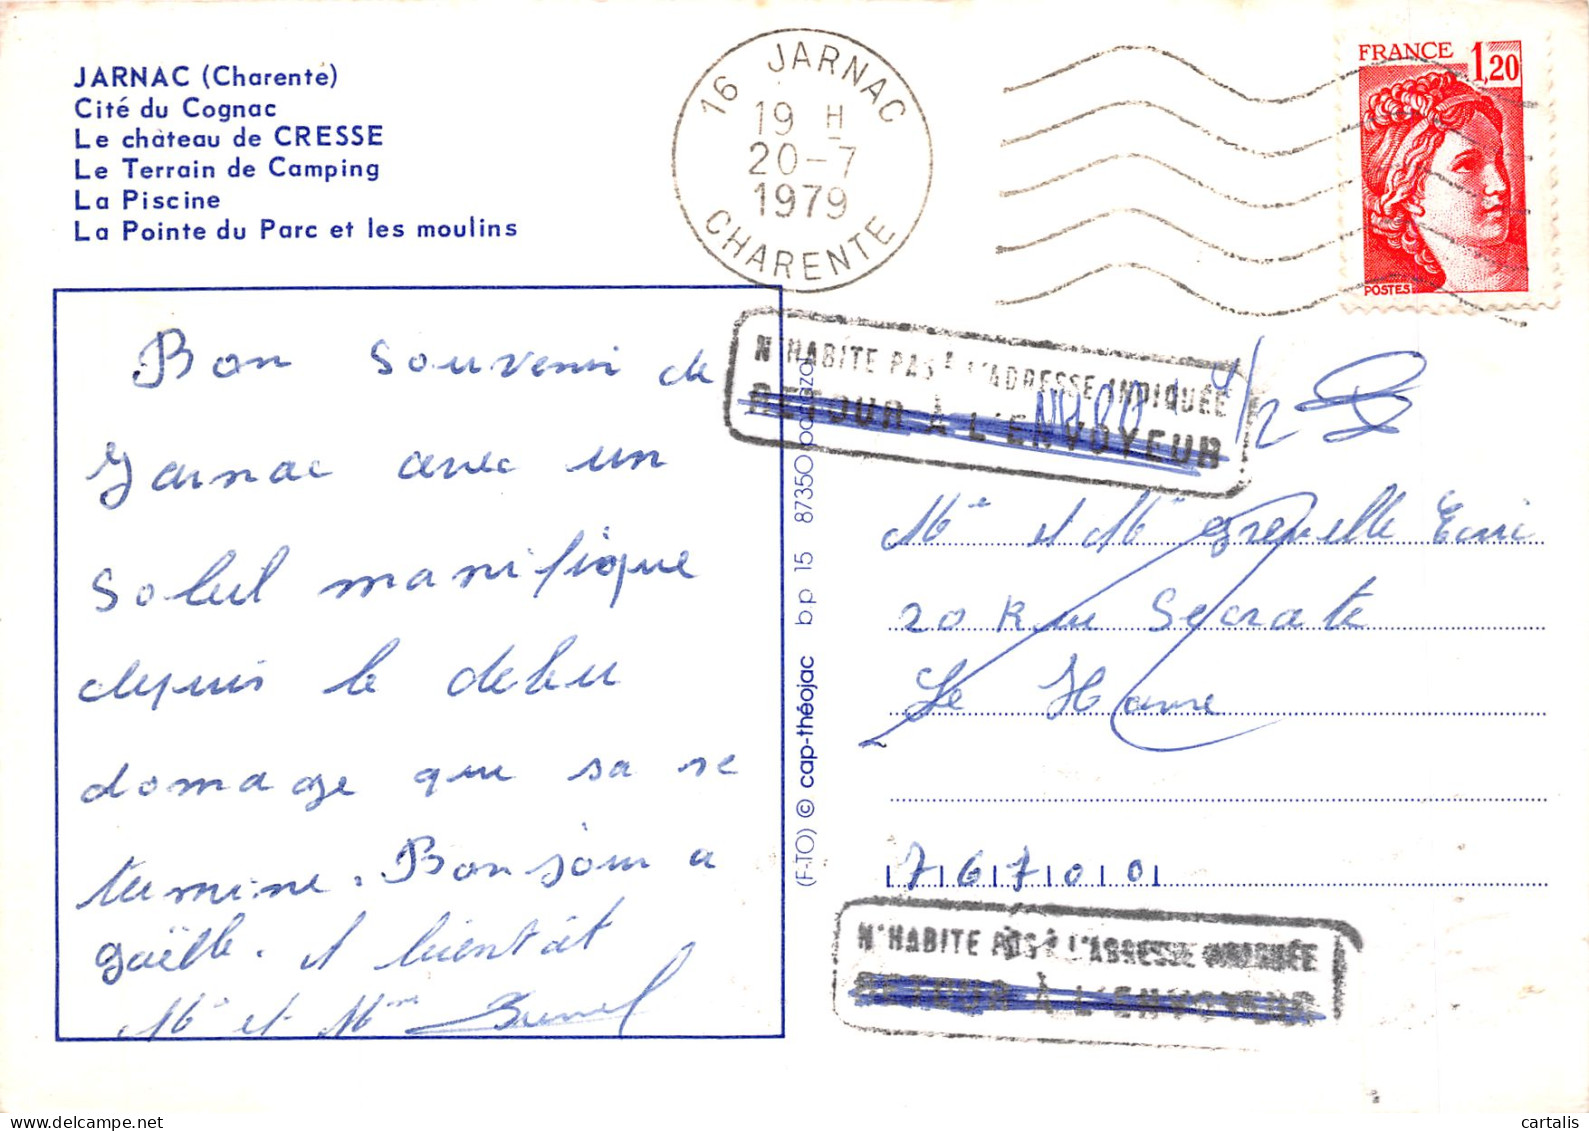 JARNAC (Charente)
Cité du Cognac
Le château de CRESSE
Le Terrain de Camping
La Piscine
La Pointe du Parc et les moulins
16 JARNAC
19 H
20-7
1979
CHARENTE
FRANCE 1,20
POSTES
Bon souvenir de
Jarnac avec un
soleil manifique
depuis le debu
domage que sa se
termine. Bonjour a
Gaëlle. A bientôt
Mr et Mme
N'HABITE PAS À L'ADRESSE INDIQUÉE
RETOUR À L'ENVOYEUR
1/2
Me et Mr
20 Rue Socrate
Le Havre
76700
N'HABITE PAS À L'ADRESSE INDIQUÉE
RETOUR À L'ENVOYEUR
(F-TO) © cap-théojac bp 15 87350 panazol
www.delcampe.net
cartalis